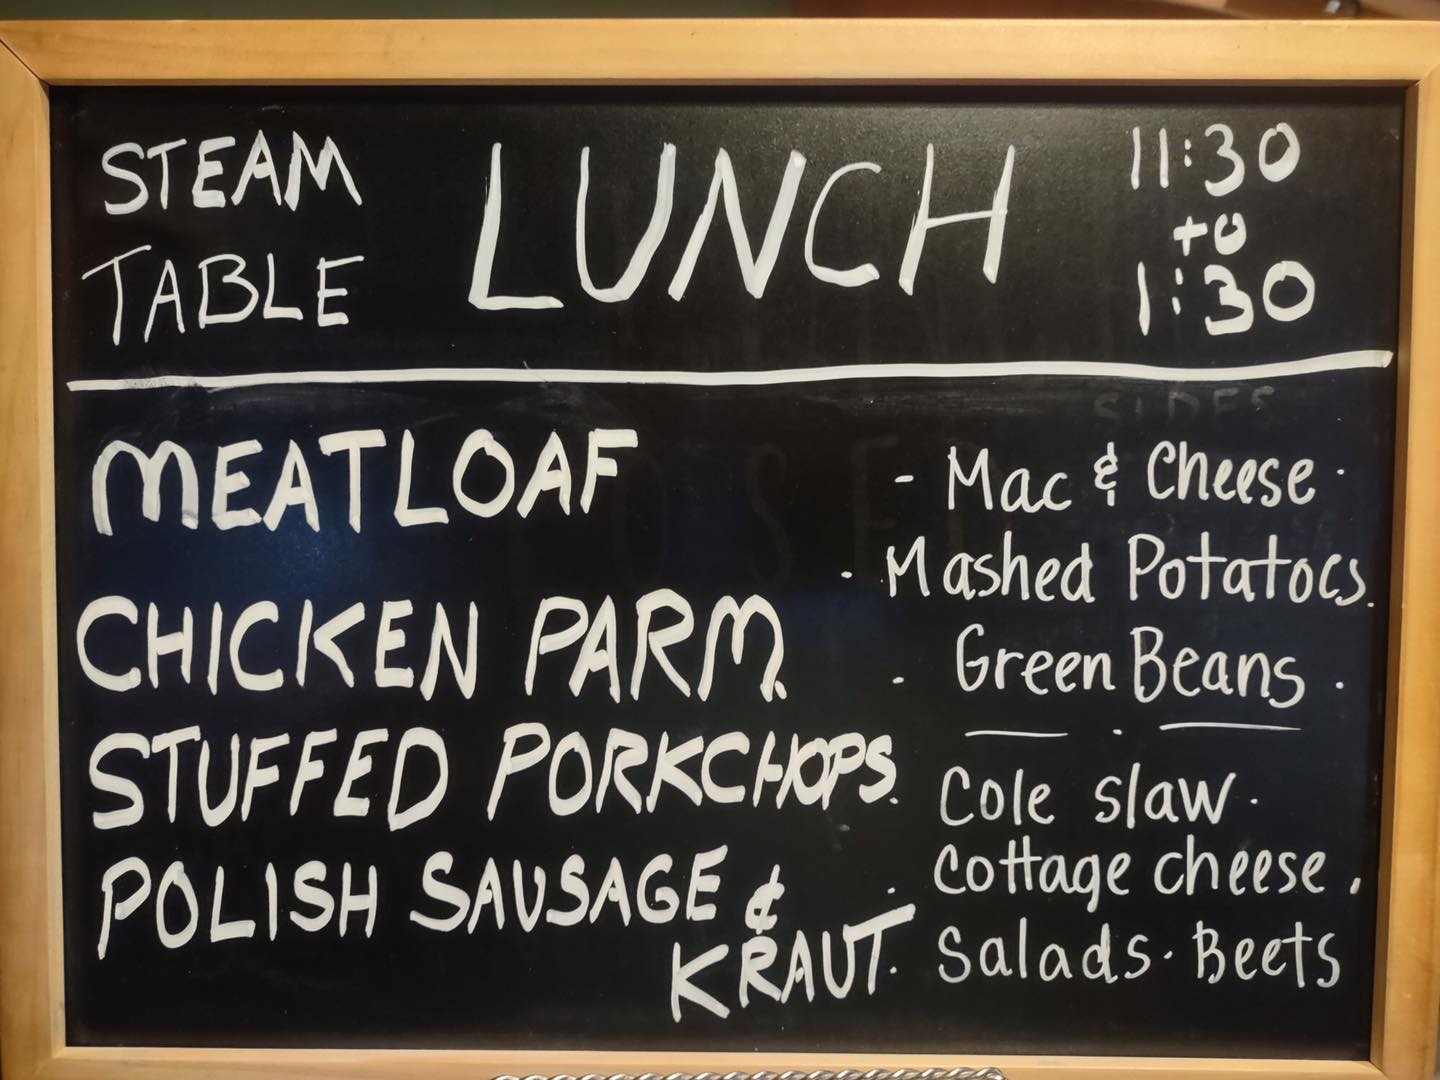 STEAM
TABLE
LUNCH
11:30
to
1:30
MEATLOAF
CHICKEN PARM.
STUFFED PORKCHOPS.
POLISH SAUSAGE &
KRAUT.
SIDES
- Mac & Cheese ·
· Mashed Potatoes.
· Green Beans ·
Cole slaw ·
· Cottage cheese .
Salads · Beets